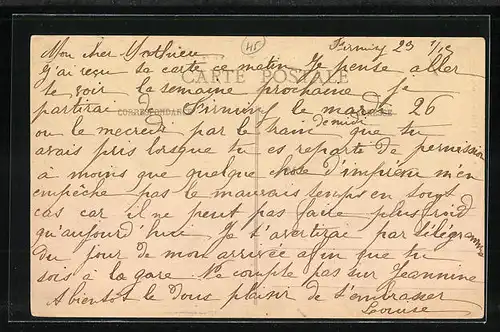 45
Firminy 23 1/15
Mon cher Mathieu
j'ai reçu ta carte ce matin Je pense aller
CARTE POSTALE
te voir la semaine prochaine je
partirai de Firminy le mardi 26
CORRESPONDANCE
ou le mercredi par le train de midi que tu
avais pris lorsque tu es reparti de permission
à moins que quelque chose d'imprévu m'en
empêche pas le mauvais temps en tout
cas car il ne peut pas faire plus froid
qu'aujourd'hui Je t'avertirai par télégramme
du jour de mon arrivée afin que tu
sois à la gare. Ne compte pas sur Jeannine
A bientôt le doux plaisir de t'embrasser
Louise